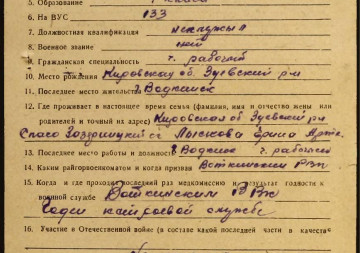 5. Образование
6. На ВУС 133
7. Должностная квалификация
8. Военное звание
9. Гражданская специальность ч. рабочий
10. Место рождения Кировская об. Зуевский р-н
11. Последнее место жительства г. Воткинск
12. Где проживает в настоящее время семья (фамилия, имя и отчество жены или
родителей и точный их адрес) Кировская об Зуевский р-н
Лыскова
13. Последнее место работы и должность г Воткинск ч. рабочий
14. Каким райгорвоенкоматом и когда призван Воткинским РВК
15. Когда и где проходил последний раз медкомиссию и результат годности к
военной службе Воткинским РВК
Годен к строевой службе
16. Участие в Отечественной войне (в составе какой последней части в качестве